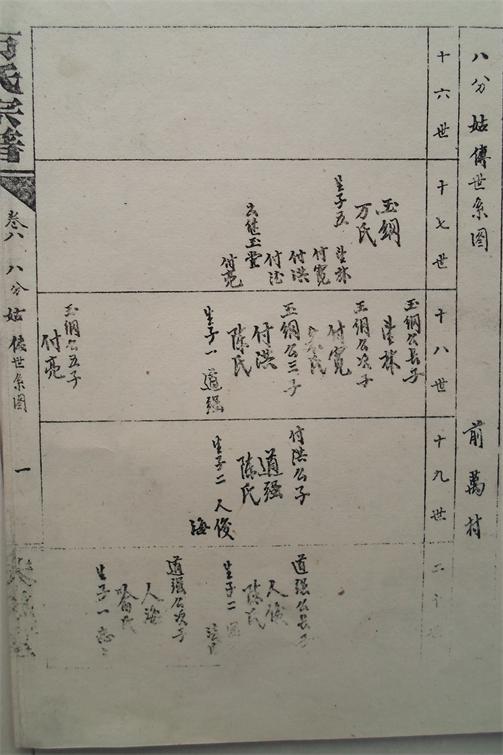 八分姑傳世系图
前萬村
十六世
十七世
玉綱
万氏
生子五
付寬
付洪
付亮
十八世
玉綱公長子
玉綱公次子
付寬
玉綱公三子
付洪
陈氏
生子一 道强
玉綱公五子
付亮
十九世
付洪公子
道强
陈氏
生子二 人俊
海
二十
道强公長子
人俊
陈氏
生子二
道强公次子
人海
生子一
氏宗譜
卷八 八分姑傳世系图
一